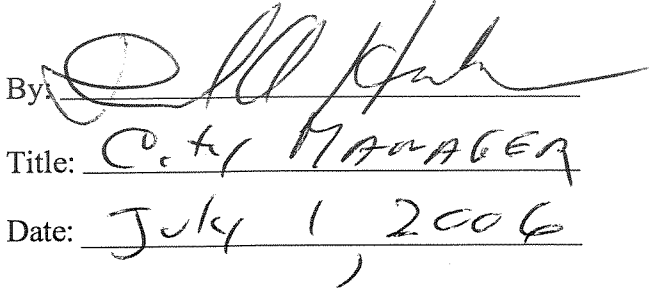 By:
Title: City MANAGER
Date: July 1, 2006